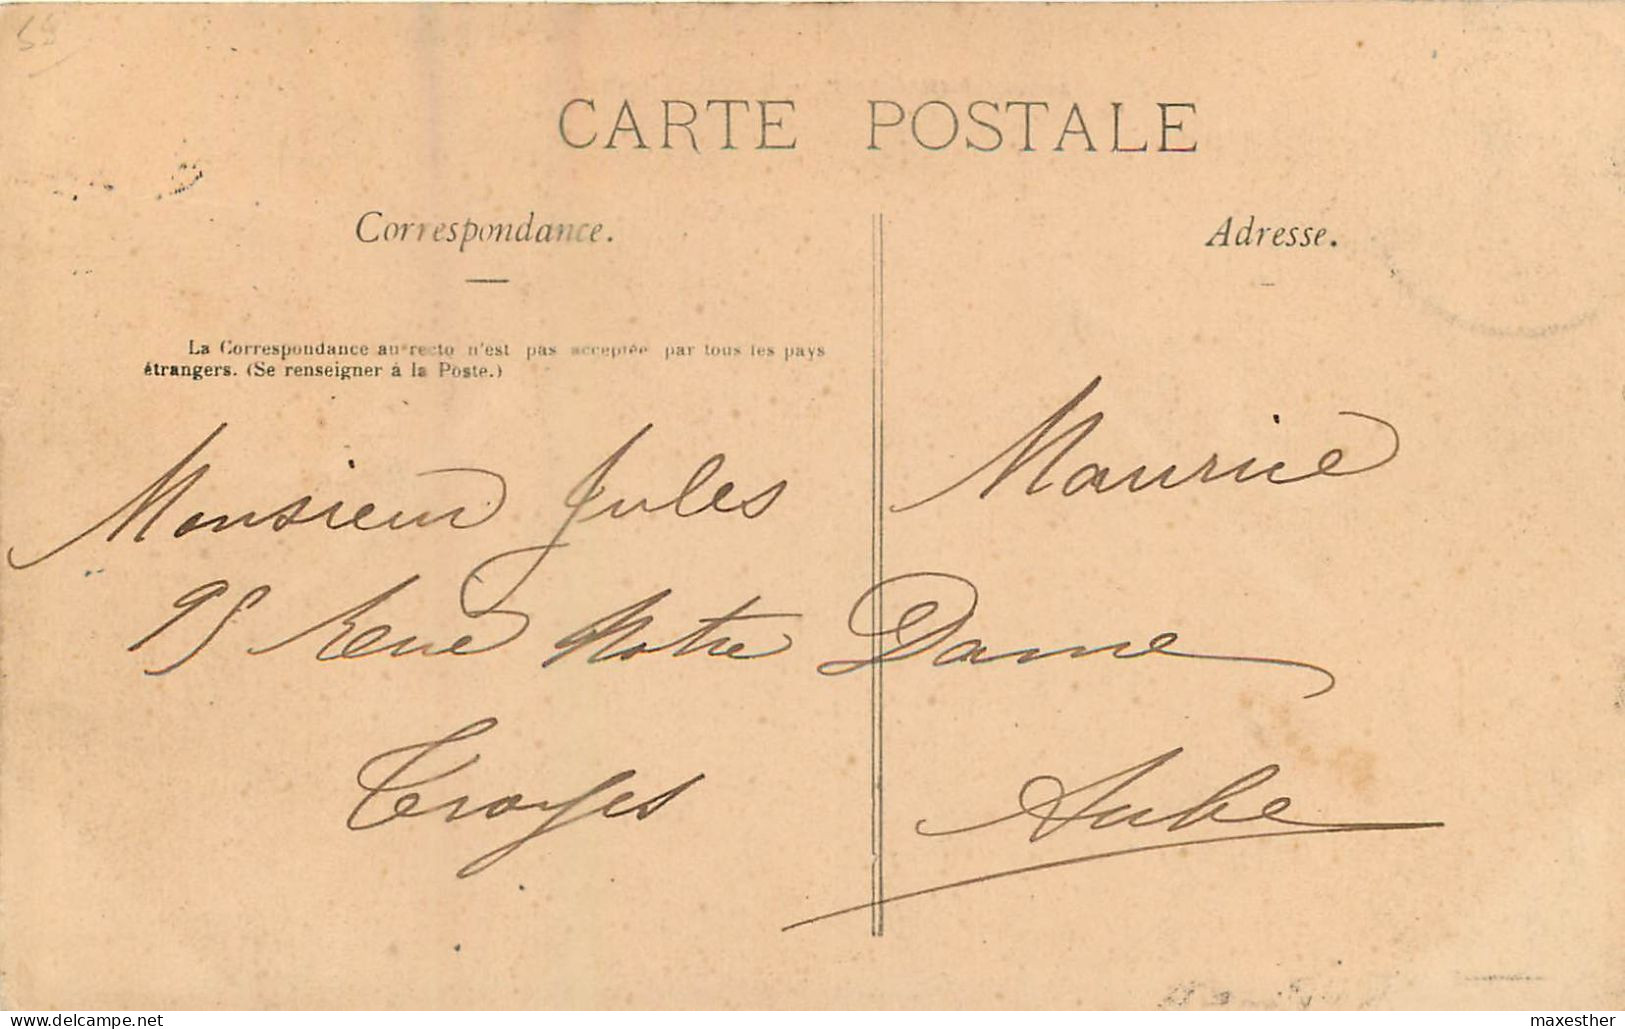 CARTE POSTALE
Correspondance.
Adresse.
La Correspondance au recto n'est pas acceptée par tous les pays
étrangers. (Se renseigner à la Poste.)
Monsieur Jules Maurice
95 Rue Notre Dame
Troyes Aube
delcampe.net
maxesther